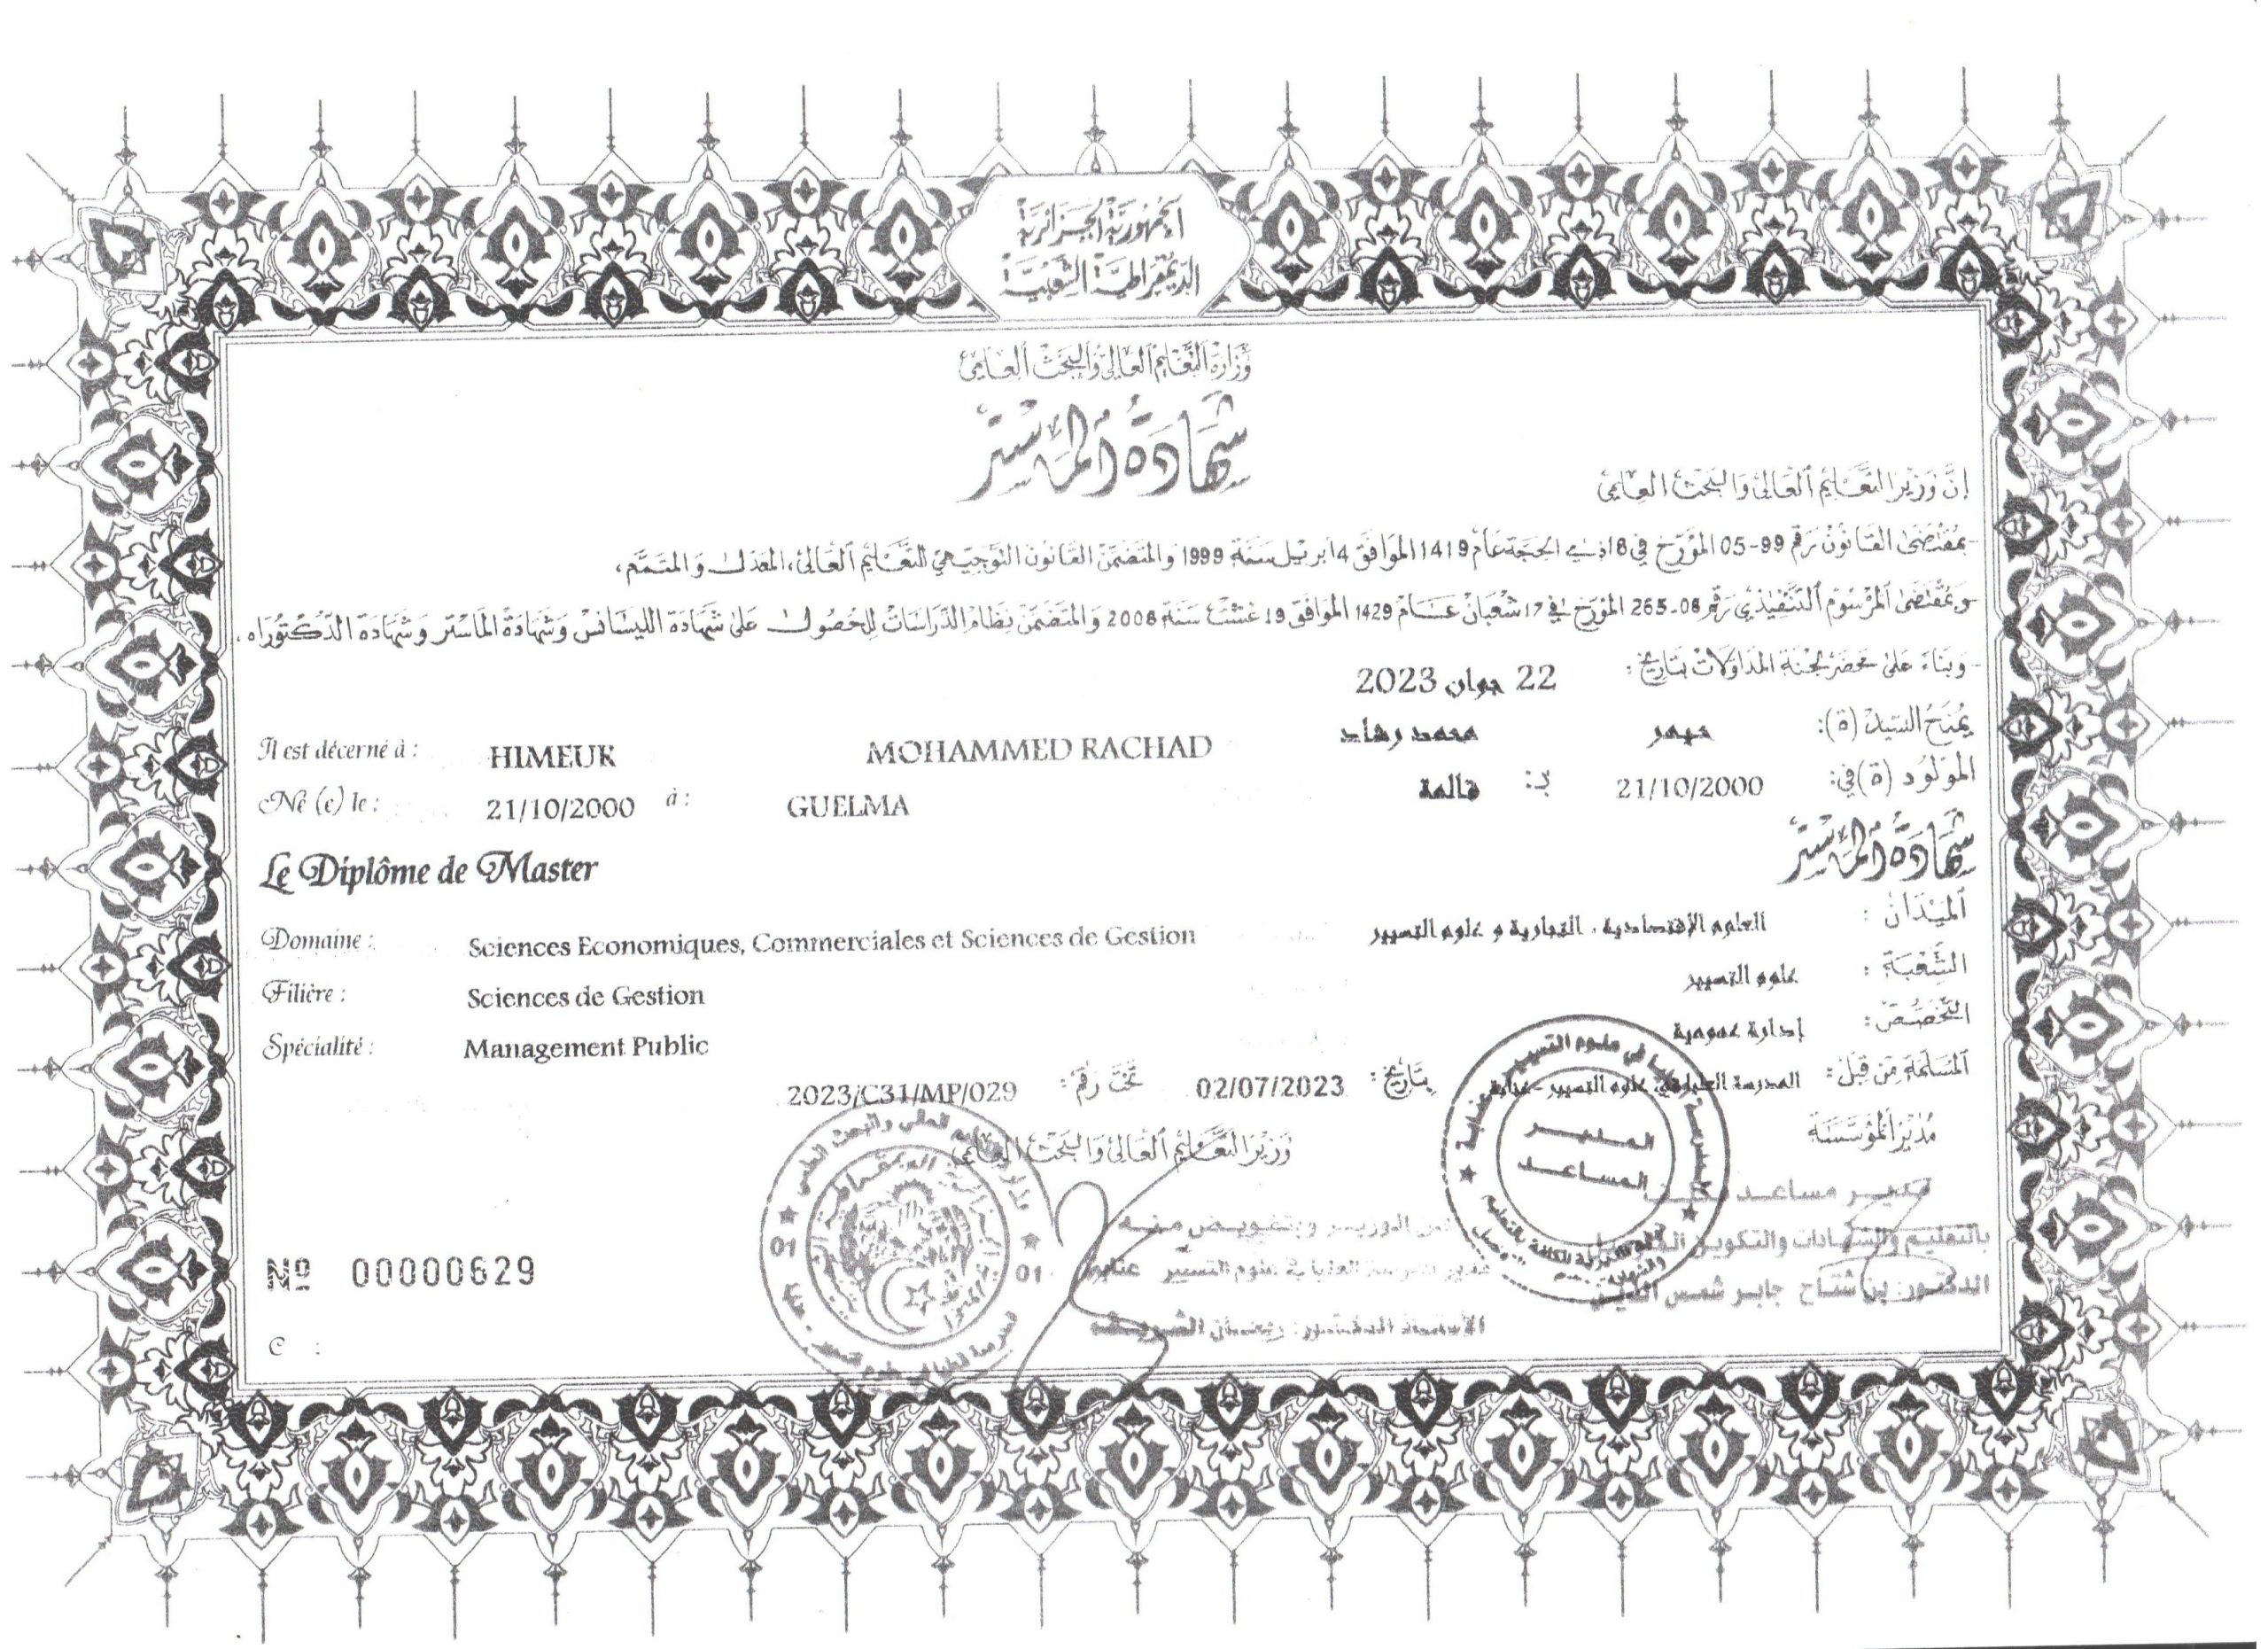 الجمهورية الجزائرية
الديمقراطية الشعبية
وزارة التعليم العالي والبحث العلمي
شهادة الماستر
إن وزير التعليم العالي والبحث العلمي
- بمقتضى القانون رقم 99-05 المؤرخ في 18 ذي الحجة عام 1419 الموافق 4 أبريل سنة 1999 والمتضمن القانون التوجيهي للتعليم العالي، المعدل والمتمم،
- وبمقتضى المرسوم التنفيذي رقم 08-265 المؤرخ في 17 شعبان عام 1429 الموافق 19 غشت سنة 2008 والمتضمن نظام الدراسات للحصول على شهادة الليسانس وشهادة الماستر وشهادة الدكتوراه،
- وبناء على محضر لجنة المداولات بتاريخ: 22 جوان 2023
يمنح السيد (ة): محمد رشاد
Il est décerné à : HIMEUR MOHAMMED RACHAD
المولود (ة) في: 21/10/2000 بـ: قالمة
Né (e) le : 21/10/2000 à : GUELMA
شهادة الماستر
Le Diplôme de Master
الميدان : العلوم الإقتصادية ، التجارية و علوم التسيير
Domaine : Sciences Economiques, Commerciales et Sciences de Gestion
الشعبة : علوم التسيير
Filière : Sciences de Gestion
التخصص : إدارة عمومية
Spécialité : Management Public
المسلمة من قبل : المدرسة العليا في علوم التسيير - عنابة بتاريخ : 02/07/2023 تحت رقم : 2023/C31/MP/029
مدير المؤسسة
وزير التعليم العالي والبحث العلمي
المدير
المساعد
مدير مساعد
عن الوزير وبتفويض منه
بالتعليم والشهادات والتكوين
مدير المدرسة العليا في علوم التسيير عنابة
الدكتور: بن شتاح جابر شمس
الأستاذ الدكتور:
01
01
Nº 00000629
C :